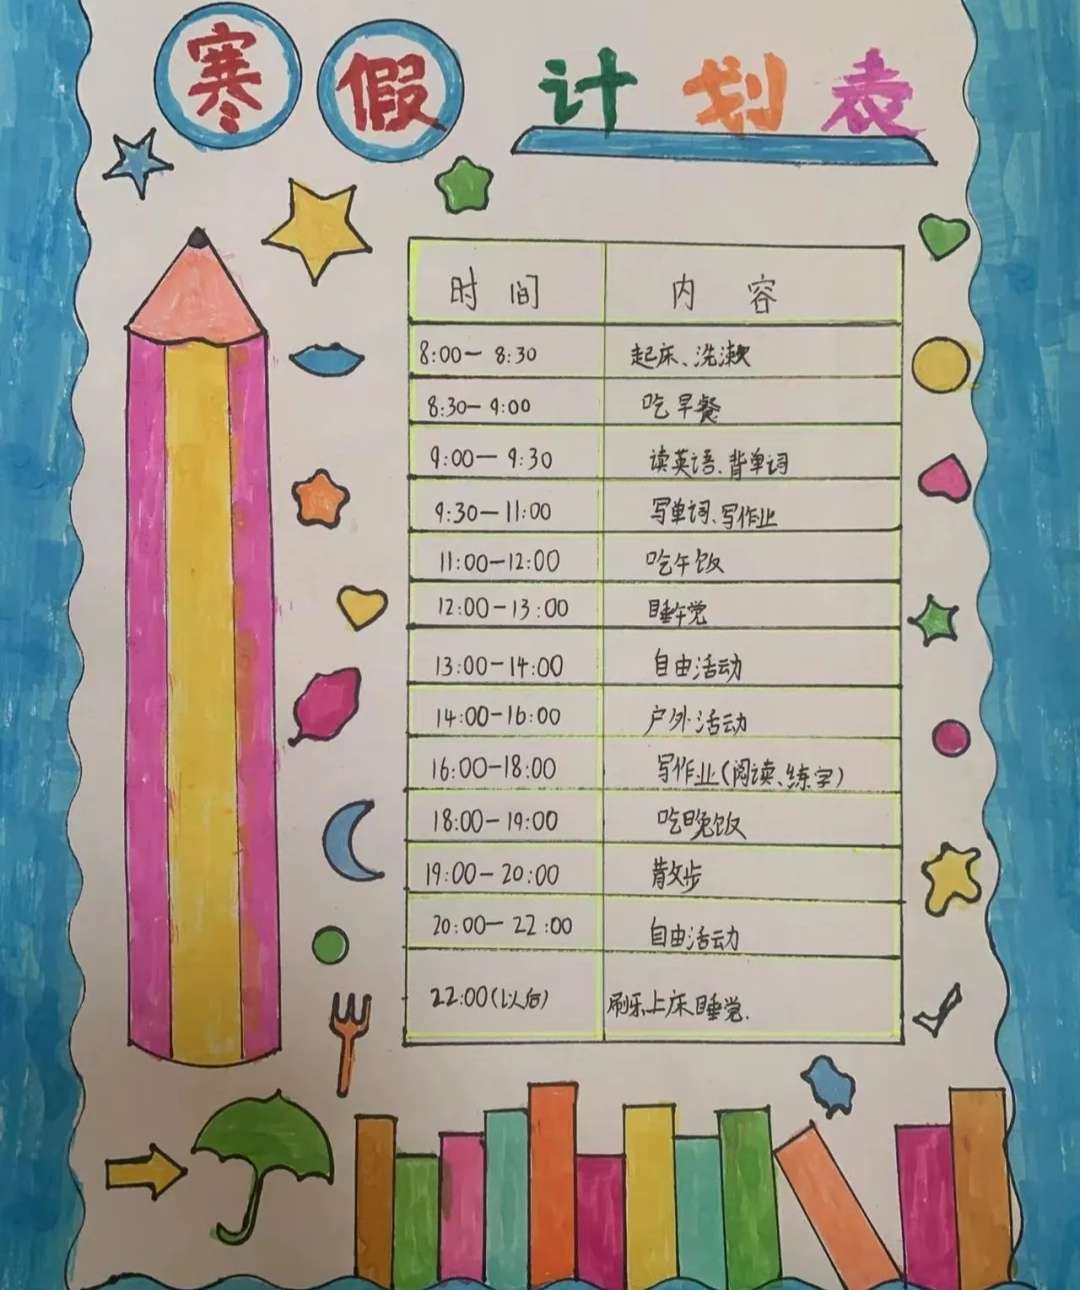 寒假 计划表
时间 内容
8:00-8:30 起床、洗漱
8:30-9:00 吃早餐
9:00-9:30 读英语、背单词
9:30-11:00 写单词、写作业
11:00-12:00 吃午饭
12:00-13:00 睡午觉
13:00-14:00 自由活动
14:00-16:00 户外活动
16:00-18:00 写作业(阅读、练字)
18:00-19:00 吃晚饭
19:00-20:00 散步
20:00-22:00 自由活动
22:00(以后) 刷乐上床睡觉.